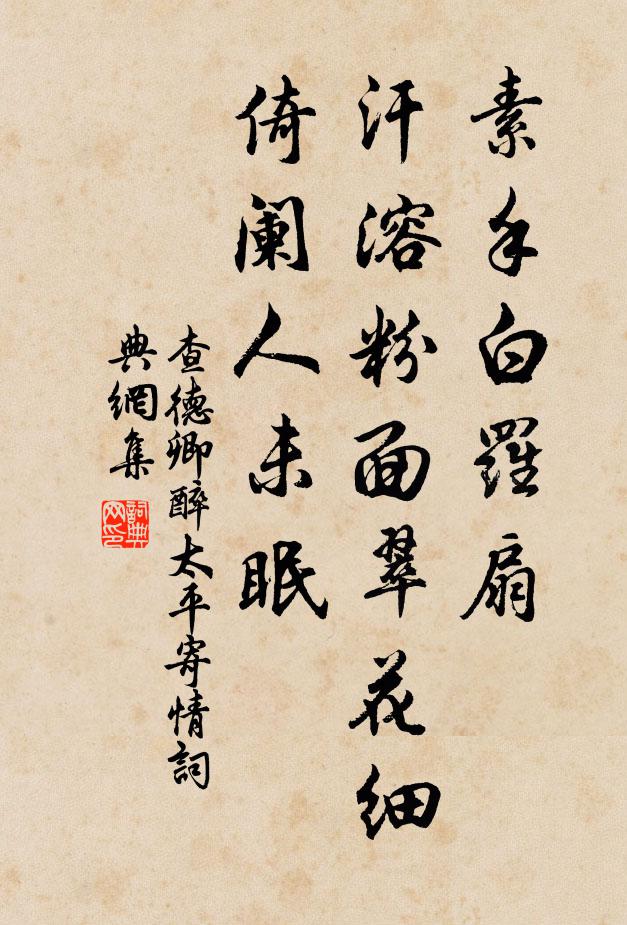 素手白羅扇
汗溶粉面翠花细
倚阑人未眠
查德卿醉太平寄情詞
典網集
詞典
网印